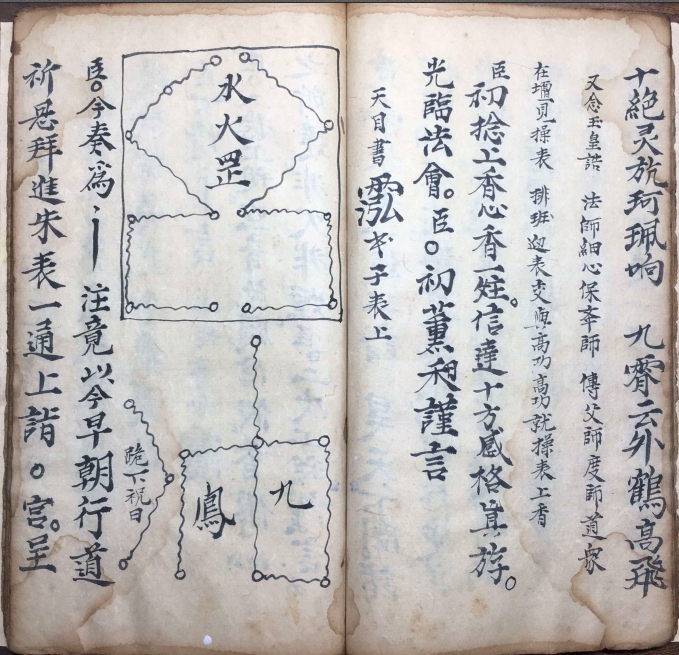 十絶灵旂珂珮响 九霄云外鶴高飛
又念玉皇誥 法師細心保奉師 傳父師度師道眾
在壇見操表 排班 迎表交與高功高功就操表上香
臣初捻上香心香一炷。信達十方感格真游。
光臨法會。臣○初薰 謹言
天目書 子表上
水火罡
九
鳳
跪下祝曰
臣○今奏爲 注竟以今早朝行道
祈恩拜進朱表一通上詣○宮。呈